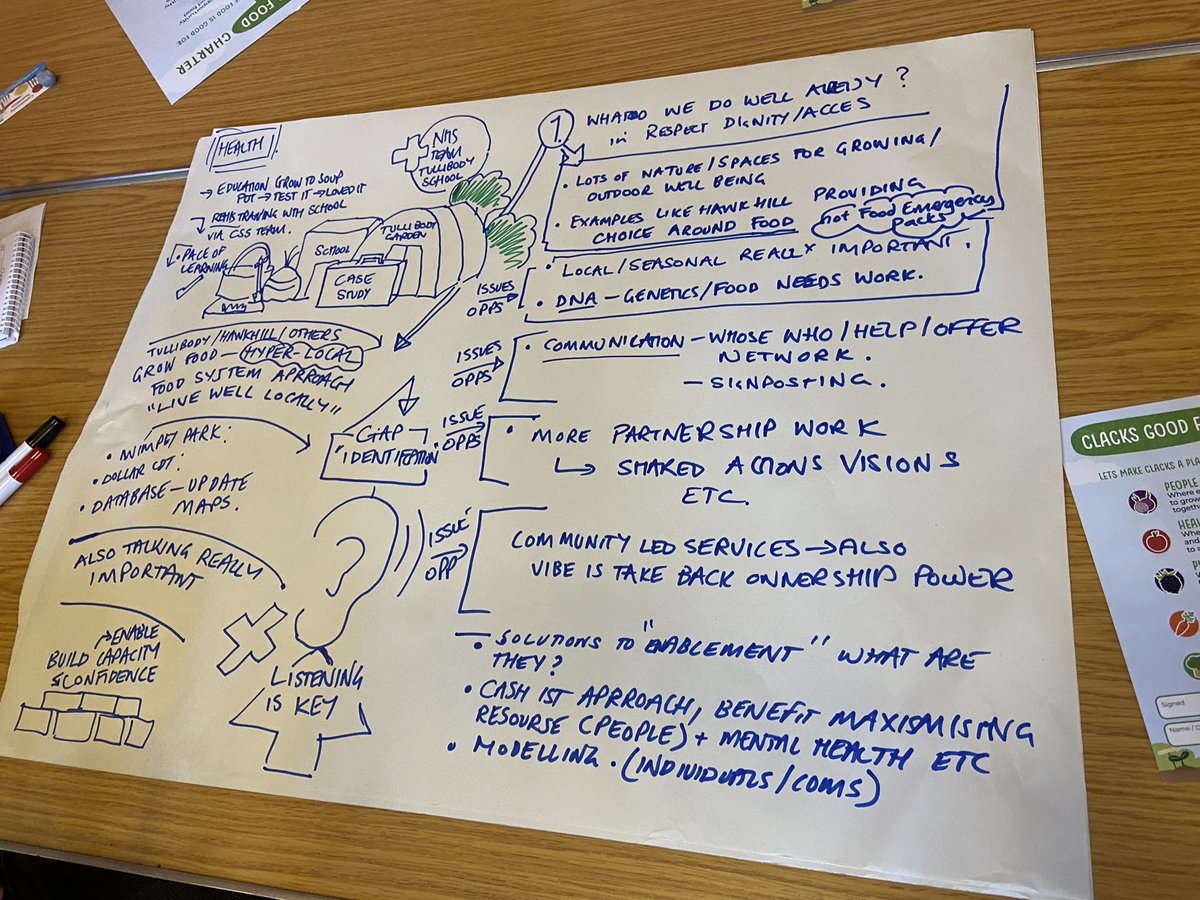 FOOD IS GOOD FOR
FOOD
CHARTER
HEALTH
→ EDUCATION GROW TO SOUP
POT → TEST IT → LOVED IT
TRAINING WITH SCHOOL
VIA CSS TEAM.
• PACE OF
LEARNING
NHS
TEAM
TULLIBODY
SCHOOL
SCHOOL
TULLIBODY
GARDEN
CASE
STUDY
TULLIBODY/HAWKHILL/OTHERS
GROW FOOD — HYPER-LOCAL
FOOD SYSTEM APRROACH
"LIVE WELL LOCALLY"
• WIMPEY PARK:
• DOLLAR CDT:
• DATABASE — UPDATE
MAPS.
ALSO TALKING REALLY
IMPORTANT
→ ENABLE
BUILD CAPACITY
& CONFIDENCE
GAP
IDENTIFICATION
LISTENING
IS KEY
1
WHAT DO WE DO WELL ALREADY?
in RESPECT DIGNITY/ACCES
• LOTS OF NATURE/SPACES FOR GROWING/
OUTDOOR WELL BEING
• EXAMPLES LIKE HAWKHILL PROVIDING
CHOICE AROUND FOOD not Food Emergency
Packs
ISSUES
OPPS
• LOCAL/SEASONAL REALLY IMPORTANT.
• DNA — GENETICS/FOOD NEEDS WORK.
ISSUES
OPPS
• COMMUNICATION — WHOSE WHO/HELP/OFFER
NETWORK.
— SIGNPOSTING.
ISSUE
OPPS
• MORE PARTNERSHIP WORK
↳ SHARED ACTIONS VISIONS
ETC.
ISSUE
OPP
COMMUNITY LED SERVICES → ALSO
VIBE IS TAKE BACK OWNERSHIP POWER
• SOLUTIONS TO "EABLEMENT" WHAT ARE
THEY?
• CASH IST APRROACH, BENEFIT MAXISMISING
RESOURSE (PEOPLE) + MENTAL HEALTH ETC
• MODELLING. (INDIVIDUALS/COMS)
CLACKS GOOD F
LETS MAKE CLACKS A PLA
PEOPLE
Where
to grow
together
HEAL
Whe
and
to a
Signed
Name / C